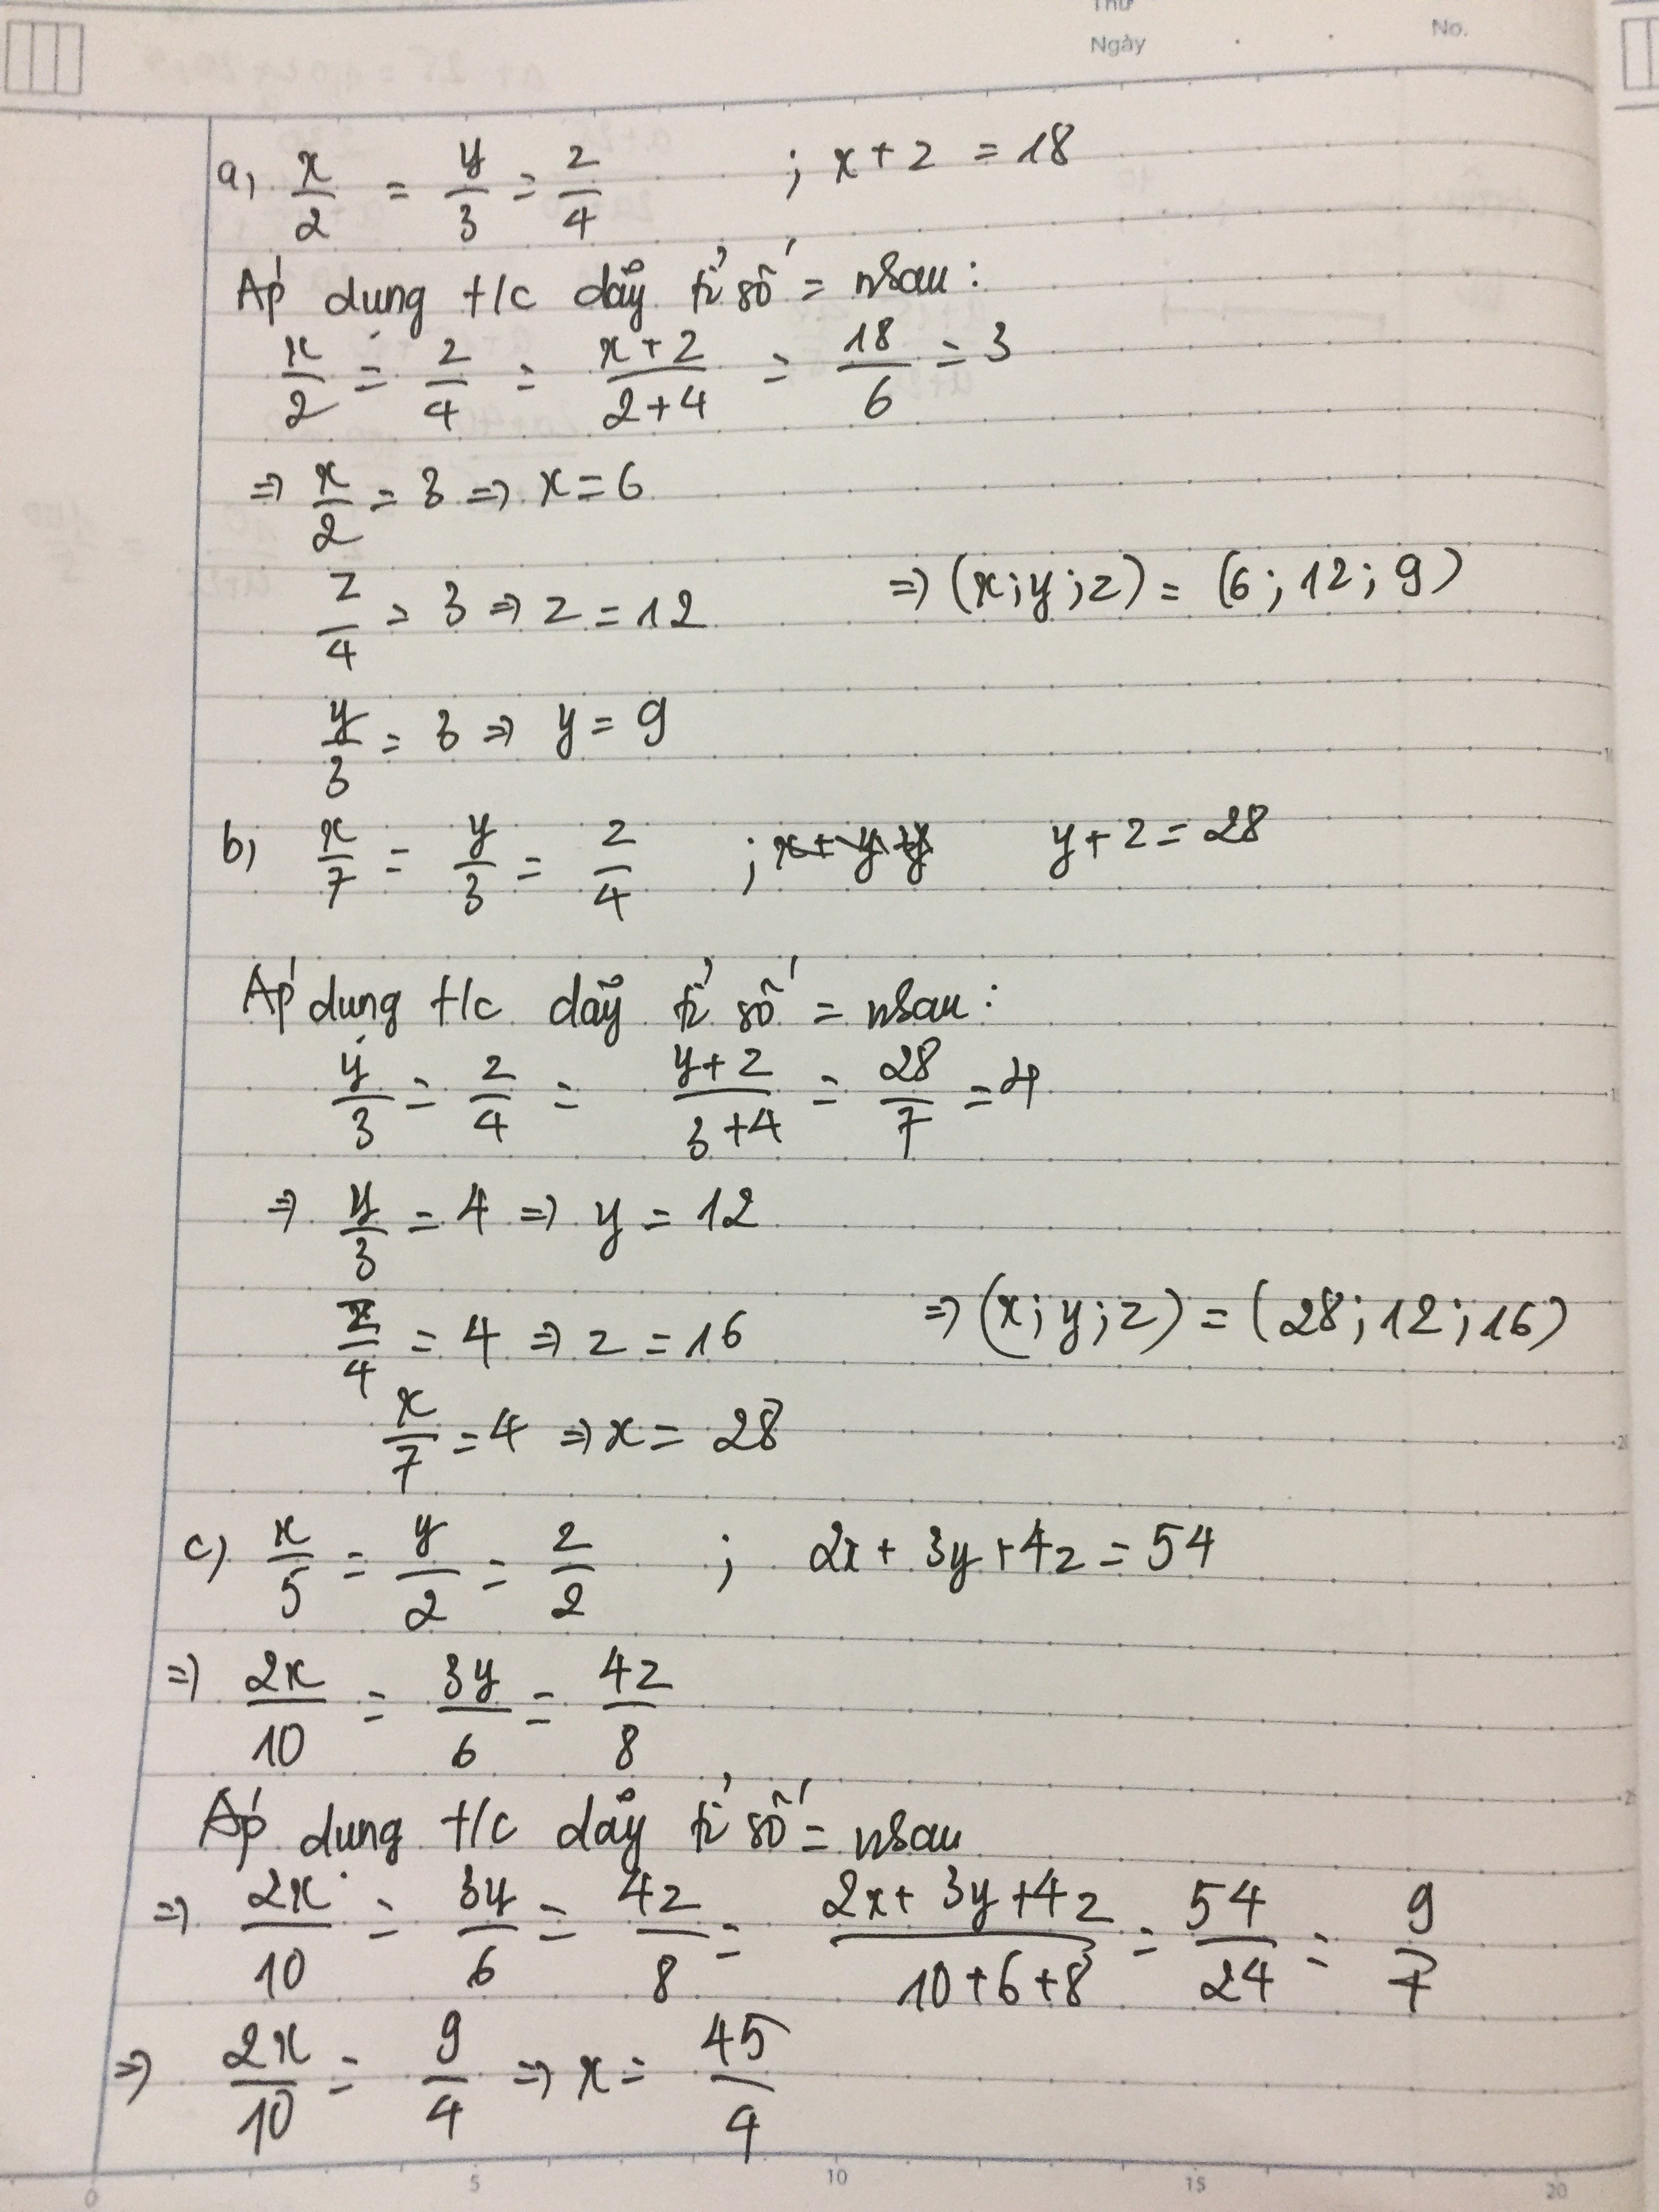 Thứ
Ngày No.
a, x/2 = y/3 = z/4 ; x + z = 18
Áp dụng t/c dãy tỉ số = nhau:
x/2 = z/4 = (x+z)/(2+4) = 18/6 = 3
=> x/2 = 3 => x = 6
z/4 = 3 => z = 12 => (x;y;z) = (6; 12; 9)
y/3 = 3 => y = 9
b, x/7 = y/3 = z/4 ; y + z = 28
Áp dụng t/c dãy tỉ số = nhau:
y/3 = z/4 = (y+z)/(3+4) = 28/7 = 4
=> y/3 = 4 => y = 12
z/4 = 4 => z = 16 => (x; y; z) = (28; 12; 16)
x/7 = 4 => x = 28
c) x/5 = y/2 = z/2 ; 2x + 3y + 4z = 54
=> 2x/10 = 3y/6 = 4z/8
Áp dụng t/c dãy tỉ số = nhau
=> 2x/10 = 3y/6 = 4z/8 = (2x + 3y + 4z)/(10+6+8) = 54/24 = 9/4
=> 2x/10 = 9/4 => x = 45/4
0 5 10 15 20